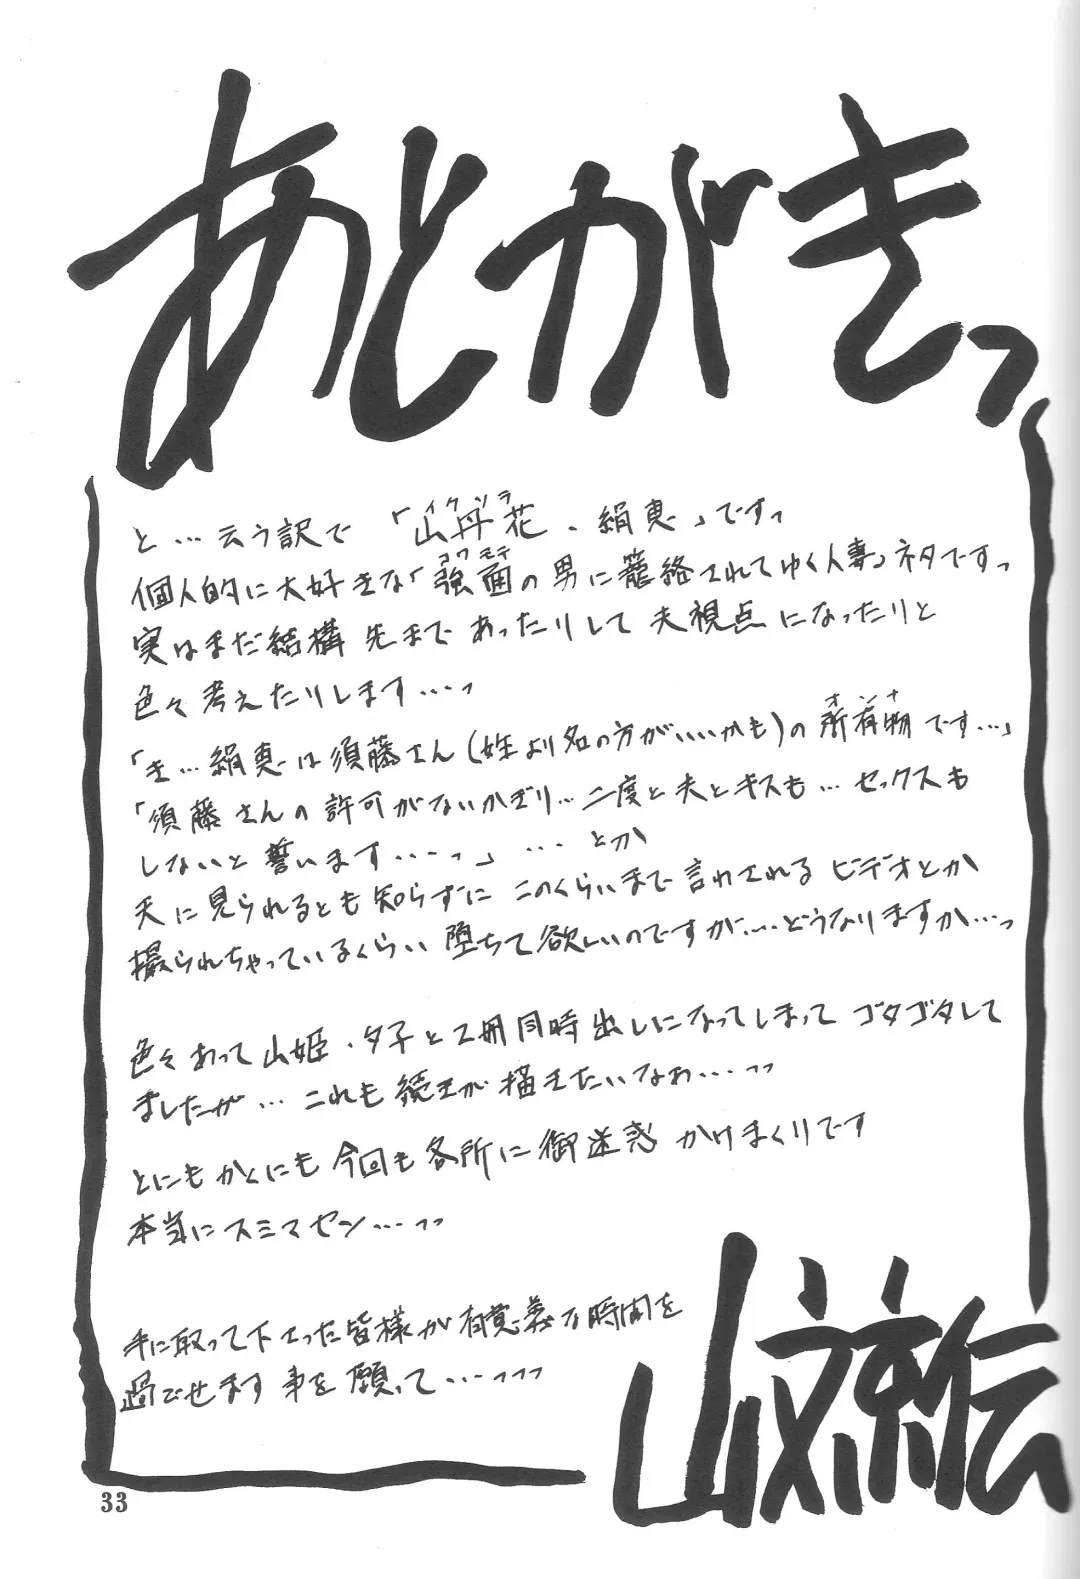 あとがきっ
と…云う訳で「山丹花、絹恵」ですっ
イクシラ
個人的に大好きな「強面の男に籠絡されてゆく人妻」ネタですっ
コワモテ
実はまだ結構先まであったりして夫視点になったりと
色々考えたりします…っ
「き…絹恵は須藤さん(姓より名の方がいいかも)の所有物です…」
オンナ
「須藤さんの許可がないかぎり…二度と夫とキスも…セックスも
しないと誓います…っ」…とか
夫に見られるとも知らずにこのくらいまで言わされるビデオとか
撮られちゃっているくらい堕ちて欲しいのですが…どうなりますか…っ
色々あって山姫・夕子と2冊同時出しになってしまってゴタゴタして
ましたが…これも続きが描きたいなぁ…っっ
とにもかくにも今回も各所に御迷惑かけまくりです
本当にスミマセン…っっ
手に取って下さった皆様が有意義な時間を
過ごせます事を願って…っっっ
山文京伝
33